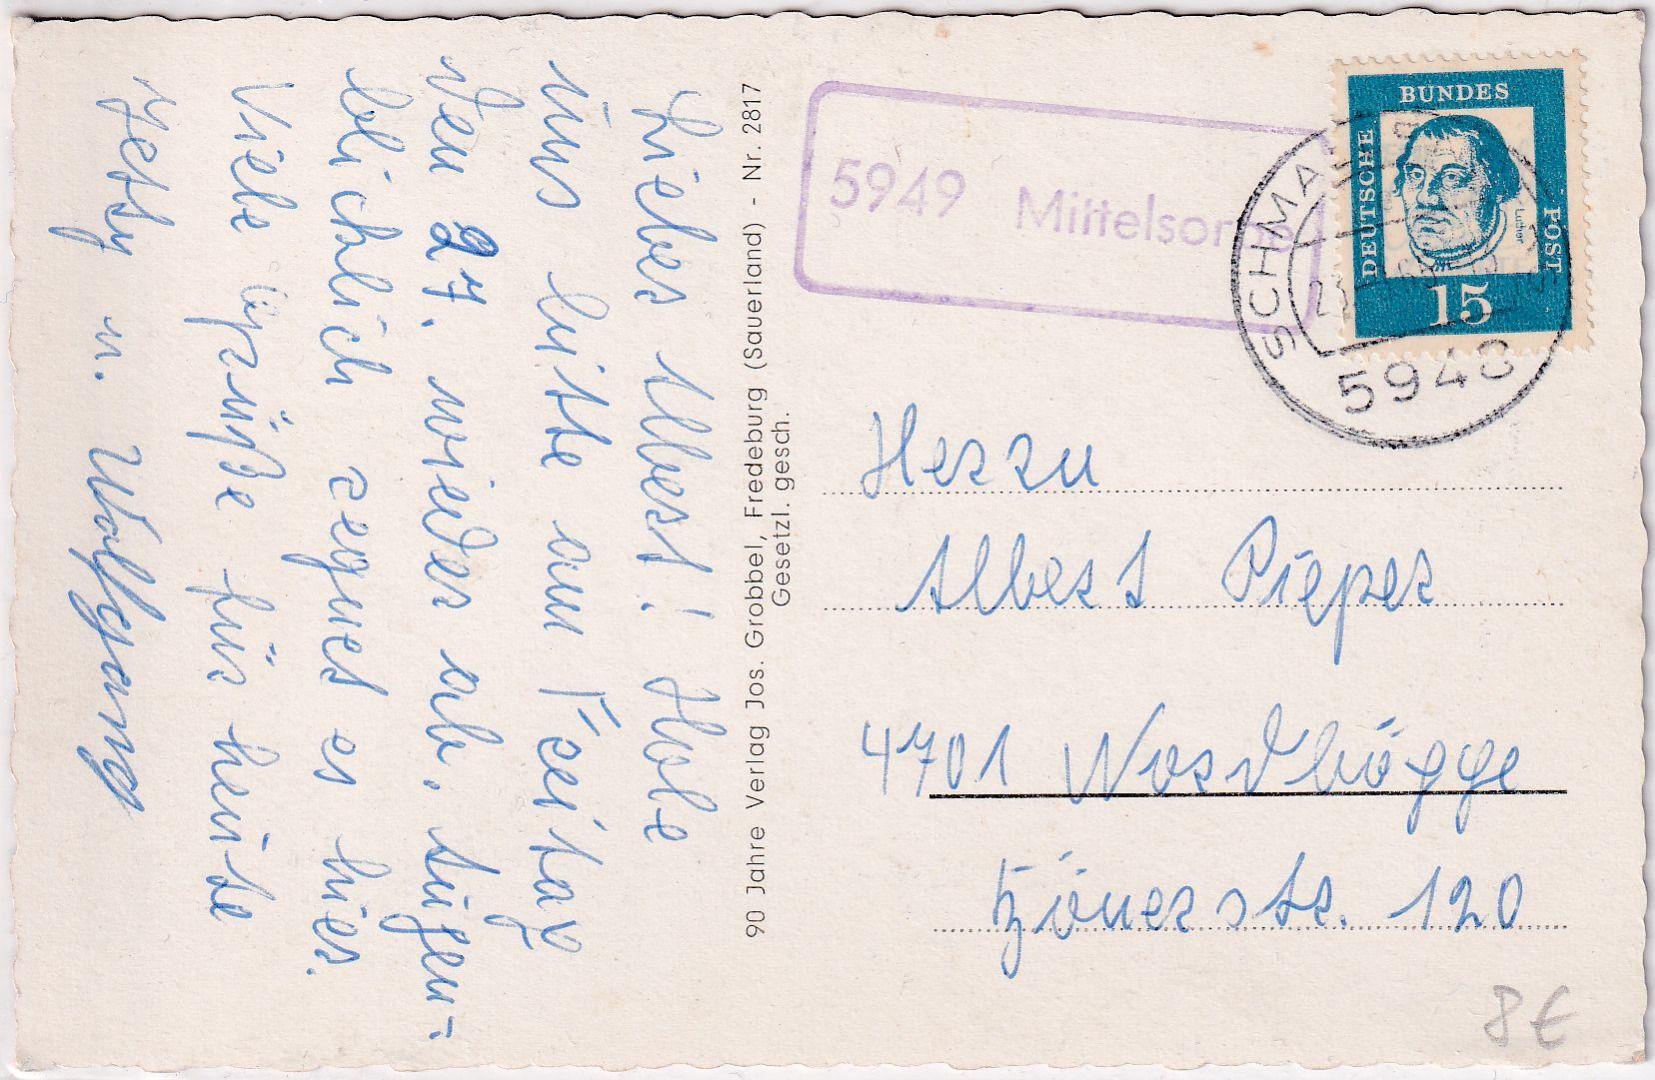 Liebes Albert! Hole
uns bitte am Freitag
den 27. wieder ab. Augen-
blicklich regnet es hier.
Viele Grüße für heute
Jetty u. Wolfgang
90 Jahre Verlag Jos. Grobbel, Fredeburg (Sauerland) - Nr. 2817
Gesetzl. gesch.
5949 Mittelsorpe
DEUTSCHE
BUNDES
POST
Luther
15
SCHMA
5948
Herrn
Albert Pieper
4701 Nordbögge
120
8€